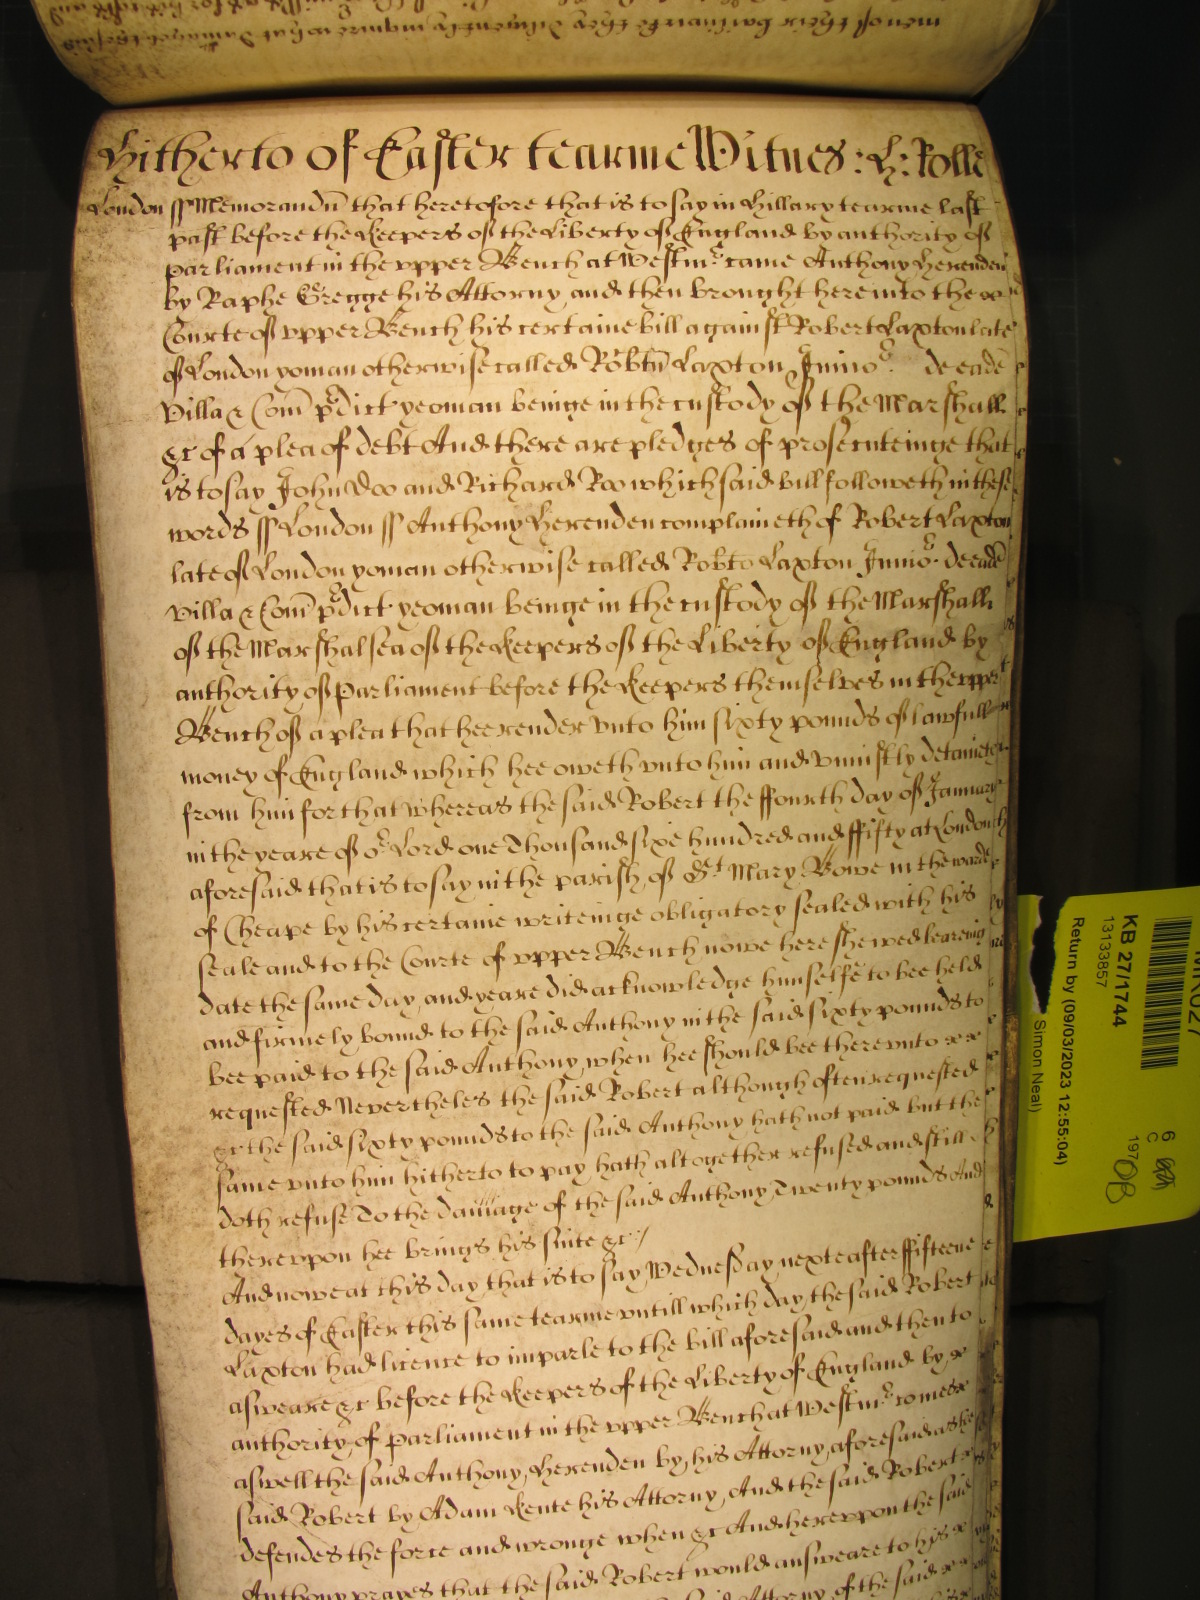 Hitherto of Easter tearme Witnes : H : Rolle
London ss Memorandu that heretofore that is to say in Hillary tearme last
past before the Keepers of the Liberty of England by authority of
parliament in the upper Bench at Westmr came Anthony Herenden
by Raphe Gregge his Attorny and then brought here into the
Courte of upper Bench his certaine bill against Robert Laxton late
of London yoman otherwise called Robtu Laxton Junior de eade
villa & Com pdict yeoman beinge in the custody of the Marshall
&c of a plea of debt And there are pledges of prosecuteinge that
is to say John Doo and Richard Roo which said bill followeth in these
words ss London ss Anthony Herenden complaineth of Robert Laxton
late of London yoman otherwise called Robto Laxton Junior de eade
villa & Com pdict yeoman beinge in the custody of the Marshall
of the Marshalsea of the Keepers of the Liberty of England by
authority of Parliament before the Keepers themselves in the upper
Bench of a plea that hee render unto him sixty pounds of lawfull
money of England which hee oweth unto him and uniustly detaineth
from him for that whereas the said Robert the ffourth day of January
in the yeare of or Lord one Thousand sixe hundred and ffifty at London
aforesaid that is to say in the parish of St Mary Bowe in the warde
of Cheape by his certaine writeinge obligatory sealed with his
seale and to the Courte of upper Bench nowe here shewed beareing
date the same day and yeare did acknowledge himselfe to bee held
and firmely bound to the said Anthony in the said sixty pounds to
bee paid to the said Anthony when hee should bee thereunto
requested Nevertheles the said Robert although often requested
&c the said sixty pounds to the said Anthony hath not paid but the
same unto him hitherto to pay hath altogether refused and still
doth refuse To the damage of the said Anthony Twenty pounds And
thereupon hee brings his suite &c
And nowe at this day that is to say Wednesday nexte after ffifteene
dayes of Easter this same tearme untill which day the said Robert
Laxton had licence to imparle to the bill aforesaid and then to
asweare &c before the Keepers of the Liberty of England by
authority of parliament in the upper Bench at Westmr comes
aswell the said Anthony Herenden by his Attorny aforesaid as the
said Robert by Adam Kente his Attorny And the said Robert
defendes the force and wronge when &c And hereupon the said
Anthony prayes that the said Robert would answeare to his
said Attorny of the said
KB 27/1744
13133857
Return by (09/03/2023 12:55:04)
Simon Neal)
6
C
197